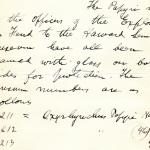 The Papyri
the Officers of the Explo
Fund to the Harvard Sem
museum have all been
framed with glass on bo
sides for protection. The
museum numbers are as
follows
2211 = Oxyrhynchus Papyri No
2212
2213